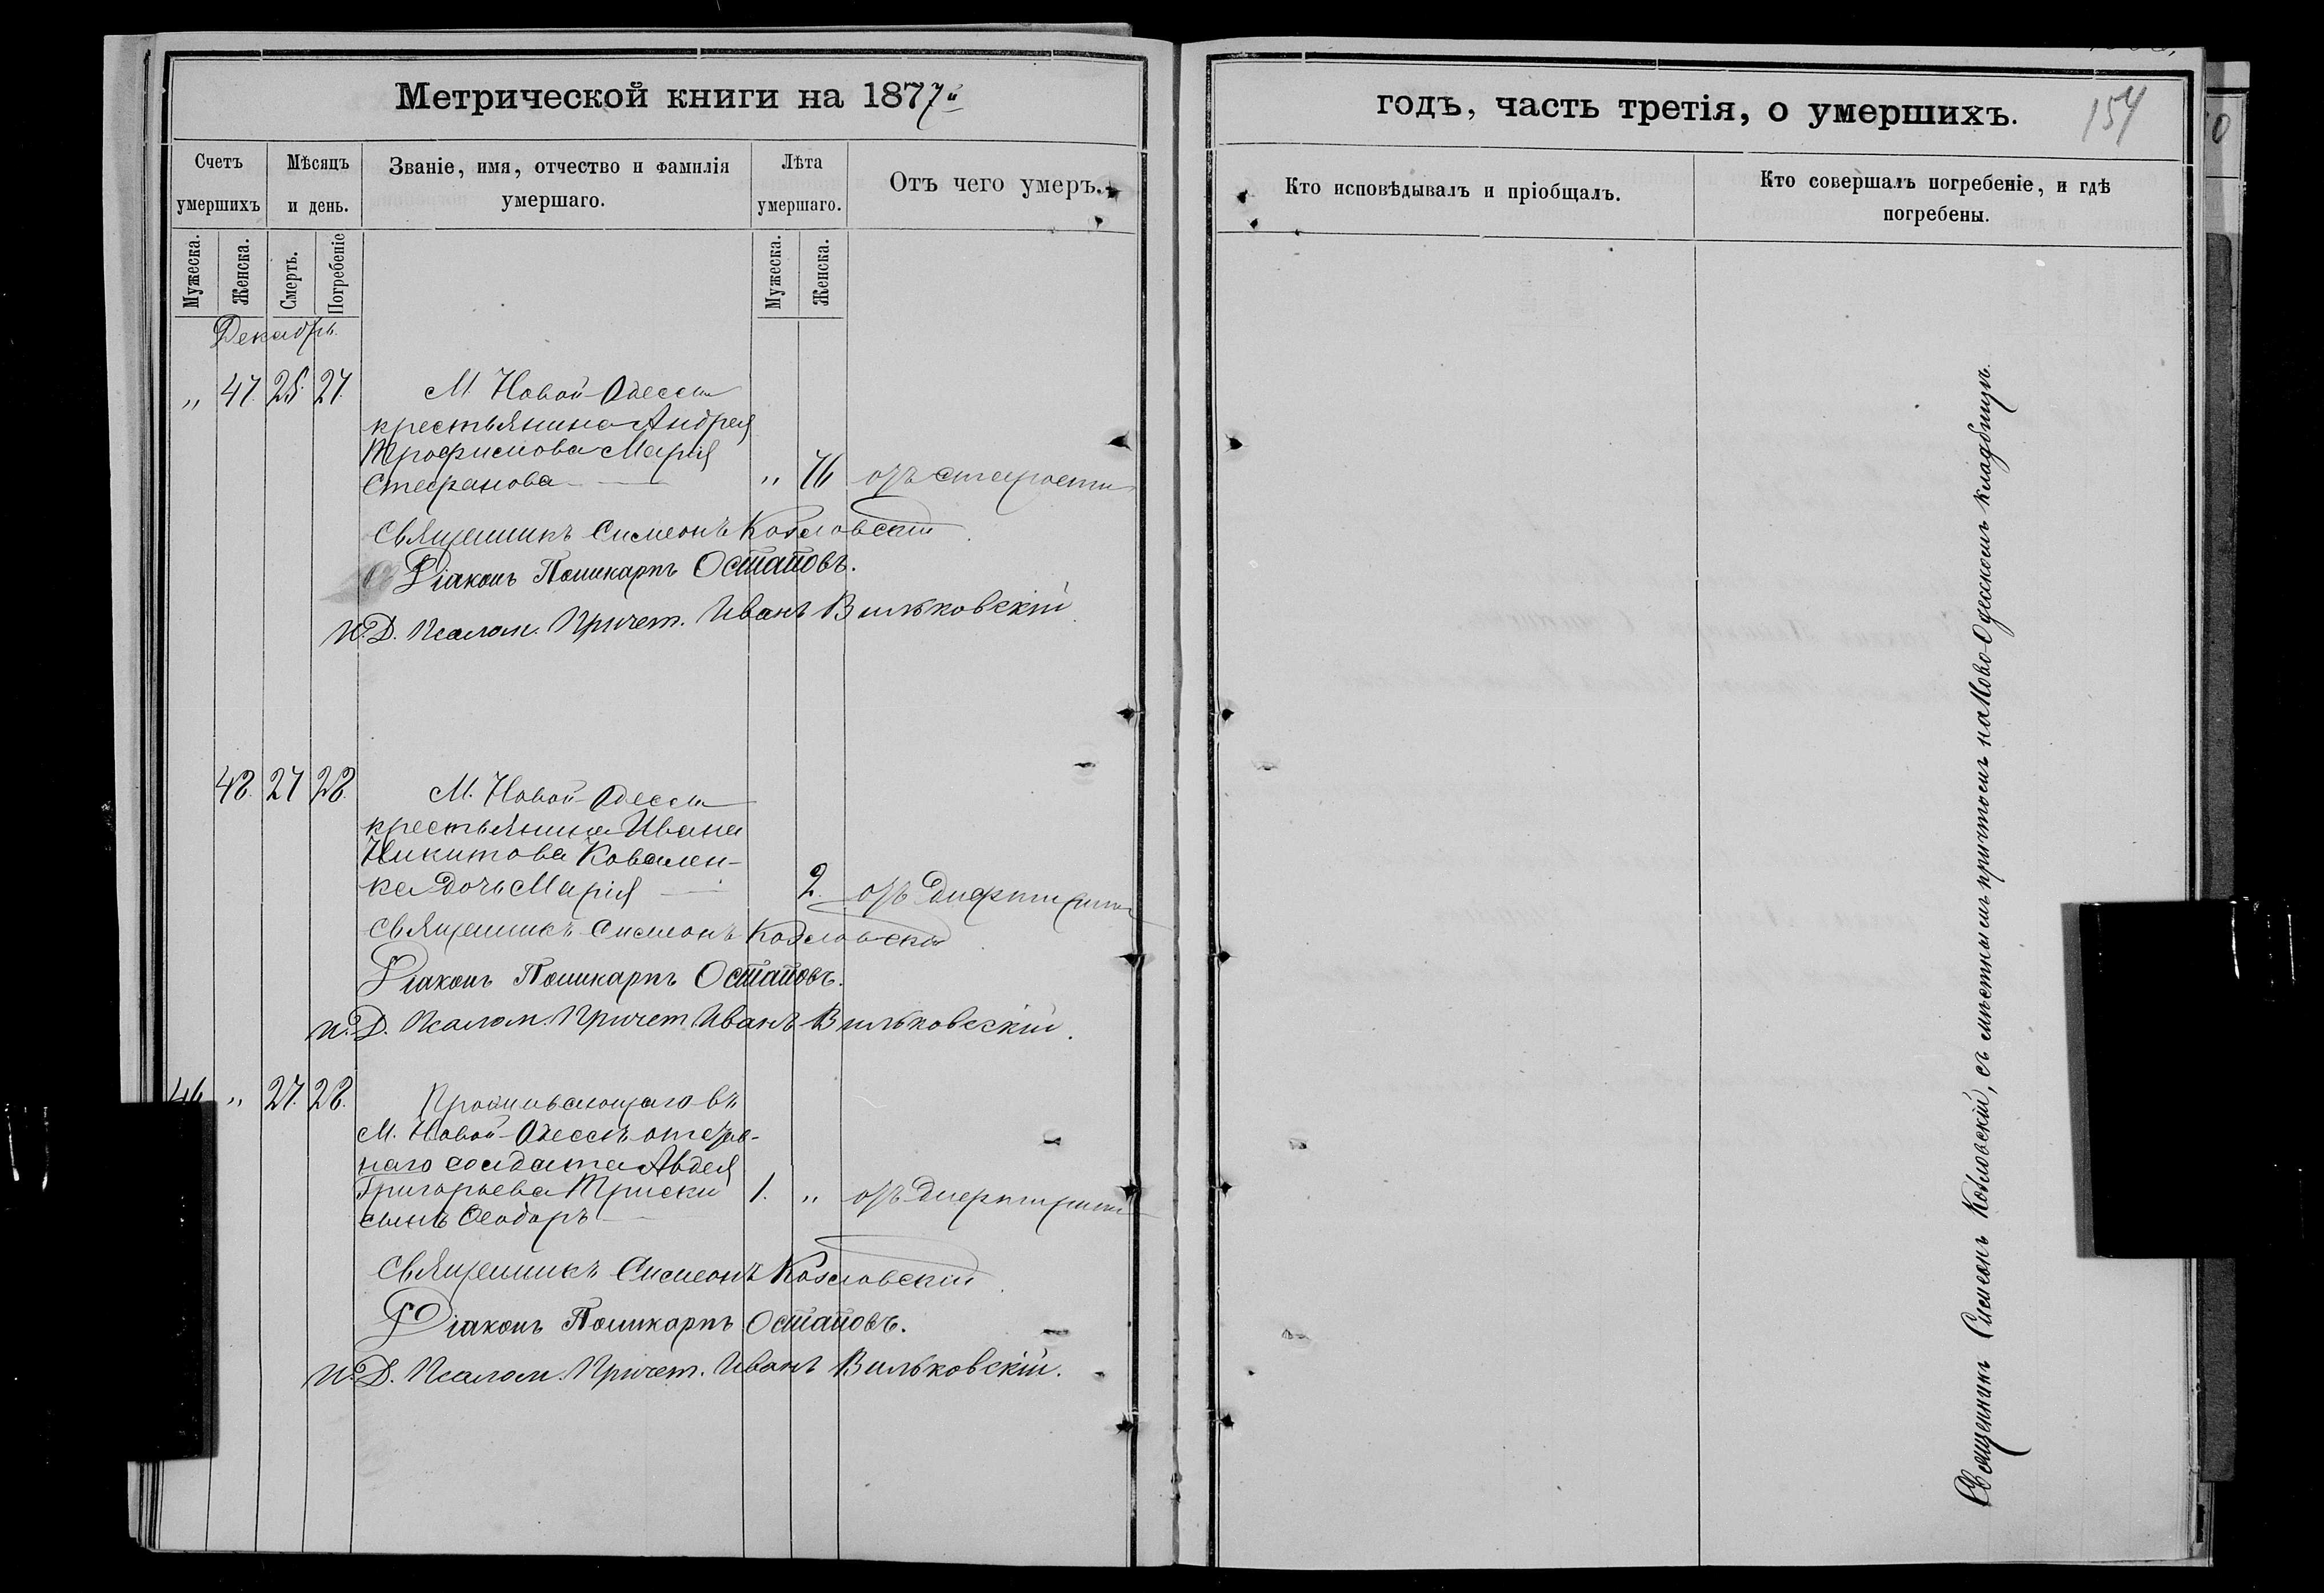 Метрической книги на 1877й
годъ, часть третія, о умершихъ.
154
Счетъ умершихъ
Мѣсяцъ и день.
Званіе, имя, отчество и фамилія умершаго.
Лѣта умершаго.
Отъ чего умеръ.
Кто исповѣдывалъ и пріобщалъ.
Кто совершалъ погребеніе, и гдѣ погребены.
Мужеска. Женска. Смерть. Погребеніе
Мужеска. Женска.
Декабрь.
„ 47. 25. 27.
М. Новой-Одессы
крестьянина Андрея
Трофимова Марія
Стефанова „ 76 отъ старости
Священникъ Симеонъ Козловскій
Діаконъ Поликарпъ Остаповъ.
И.Д. Псалом. Причет. Иванъ Вильковскій
48. 27 28.
М. Новой-Одессы
крестьянина Ивана
Никитова Ковален-
ка дочь Марія 2. отъ дифтирита
Священникъ Симеонъ Козловскій
Діаконъ Поликарпъ Остаповъ.
И.Д. Псалом. Причет Иванъ Вильковскій.
46 „ 27. 28.
Проживающаго въ
М. Новой-Одессѣ
наго солдата Авдея
Григорьева Триски 1. „ отъ дифтирита
сынъ Ѳеодоръ
Священникъ Симеонъ Козловскій
Діаконъ Поликарпъ Остаповъ.
И.Д. Псалом. Причет. Иванъ Вильковскій.
Священникъ Симеонъ Козловскій, съ мѣстнымъ причтомъ на Ново-Одесскомъ кладбищѣ.